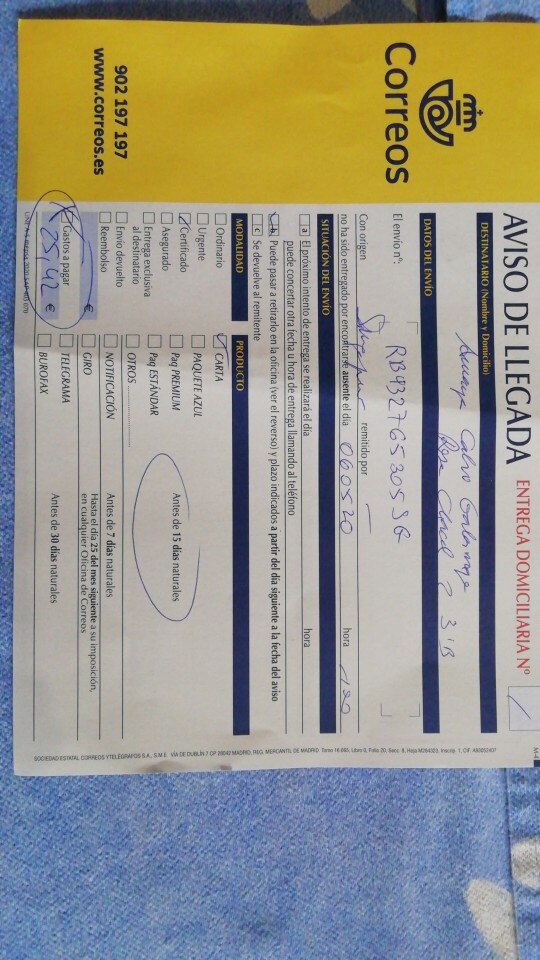 Correos
902 197 197
www.correos.es
AVISO DE LLEGADA
ENTREGA DOMICILIARIA Nº
DESTINATARIO (Nombre y Domicilio)
Calvo
Rosa Chacel 2 3ºB
DATOS DE ENVÍO
El envío n.º: RB932765305SG
Con origen Singapur remitido por
no ha sido entregado por encontrarse ausente el día 060520 hora
SITUACIÓN DEL ENVÍO
a El próximo intento de entrega se realizará el día hora
puede concertar otra fecha u hora de entrega llamando al teléfono
b Puede pasar a retirarlo en la oficina (ver el reverso) y plazo indicados a partir del día siguiente a la fecha del aviso
c Se devuelve al remitente
MODALIDAD
Ordinario
Urgente
Certificado
Asegurado
Entrega exclusiva
al destinatario
Envío devuelto
Reembolso
€
Gastos a pagar
25,42 €
PRODUCTO
CARTA
PAQUETE AZUL
Paq PREMIUM
Paq ESTÁNDAR
Antes de 15 días naturales
OTROS
NOTIFICACIÓN
Antes de 7 días naturales
GIRO
Hasta el día 25 del mes siguiente a su imposición,
en cualquier Oficina de Correos
TELEGRAMA
BUROFAX
Antes de 30 días naturales
SOCIEDAD ESTATAL CORREOS Y TELÉGRAFOS S.A., S.M.E. VÍA DE DUBLÍN 7 CP 28042 MADRID. REG. MERCANTIL DE MADRID